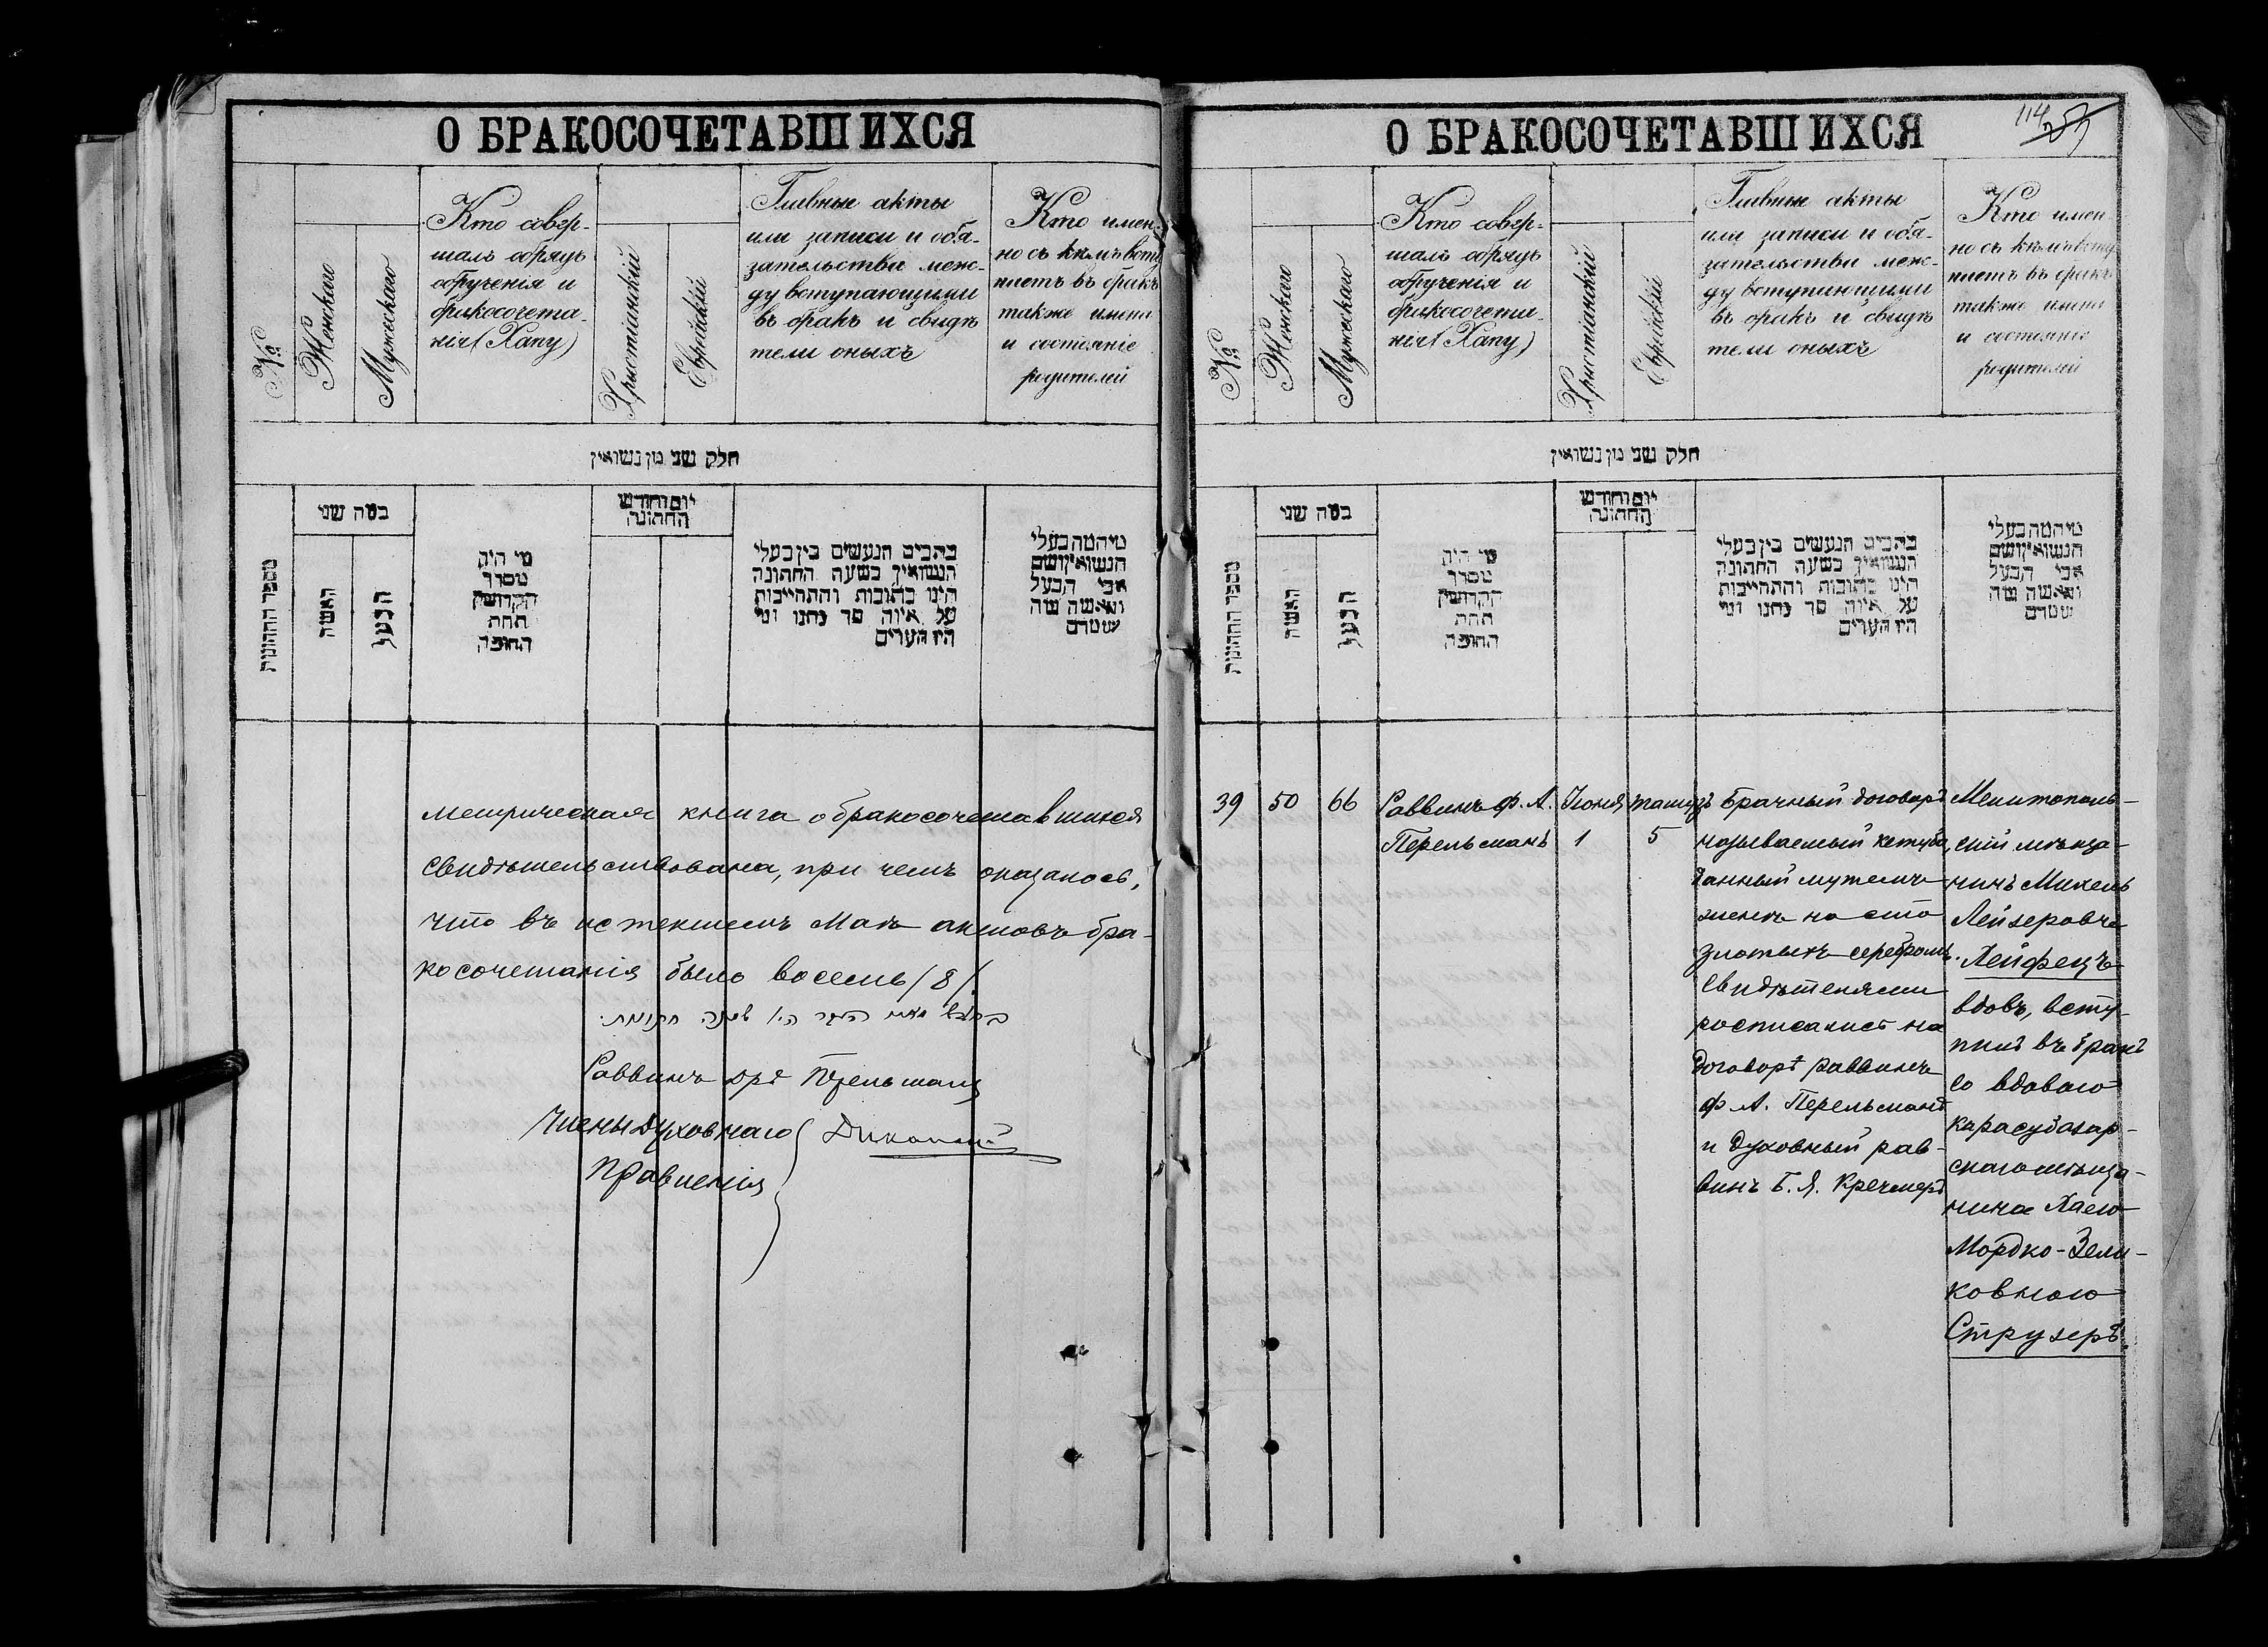 О БРАКОСОЧЕТАВШИХСЯ
№
Женскаго
Мужескаго
Кто совер-
шалъ обрядъ
обрученія и
бракосочета-
нія (Хапу)
Христіанскій
Еврейскій
Главные акты
или записи и обя-
зательства меж-
ду вступающими
въ бракъ и свидѣ
тели оныхъ
Кто имен-
но съ кѣмъ всту
паетъ въ бракъ
также имена
и состояніе
родителей
חלק שני מן נשואין
מספר החתונות
במה שני
האשה
הבעל
מי היה
מסדר
הקדושין
תחת
החופה
יום וחודש
החתונה
כתבים הנעשים בין בעלי
הנשואין בשעת החתונה
היינו כתובות והתחייבות
על איזה סך נתנו ומי
היו העדים
הנשואין ושם
אבי הבעל
והאשה
метрическая книга о бракосочетавшихся
свидѣтельствована, при чемъ оказалось,
что въ истекшемъ Маѣ актовъ бра-
косочетанія было восемь /8/.
Раввинъ Перельманъ
Члены Духовнаго
Правленія
О БРАКОСОЧЕТАВШИХСЯ
114
№
Женскаго
Мужескаго
Кто совер-
шалъ обрядъ
обрученія и
бракосочета-
нія (Хапу)
Христіанскій
Еврейскій
Главные акты
или записи и обя-
зательства меж-
ду вступающими
въ бракъ и свидѣ
тели оныхъ
Кто имен
но съ кѣмъ всту
паетъ въ бракъ
также имена
и состояніе
родителей
חלק שני מן נשואין
מספר החתונות
במה שני
האשה
הבעל
מי היה
מסדר
הקדושין
תחת
החופה
יום וחודש
החתונה
כתבים הנעשים בין בעלי
הנשואין בשעת החתונה
היינו כתובות והתחייבות
על איזה סך נתנו ומי
היו העדים
הנשואין ושם
אבי הבעל
והאשה
39
50
66
Раввинъ Ф. А.
Перельманъ
Іюня
1
Тамузъ
5
Брачный договоръ
называемый кетуба,
данный мужемъ
женѣ на сто
злотыхъ серебромъ.
Свидѣтелями
росписались на
договорѣ раввинъ
Ф. А. Перельманъ
и духовный рав-
винъ Б. Я. Кречмеръ
Мелитополь-
скій мѣща-
нинъ Михель
Лейзеровъ
Хейфецъ
вдовъ, всту-
пилъ въ бракъ
со вдовою
карасубазар-
скаго мѣща-
нина Хаею
Мордко-Зели-
ковною
Струзеръ.